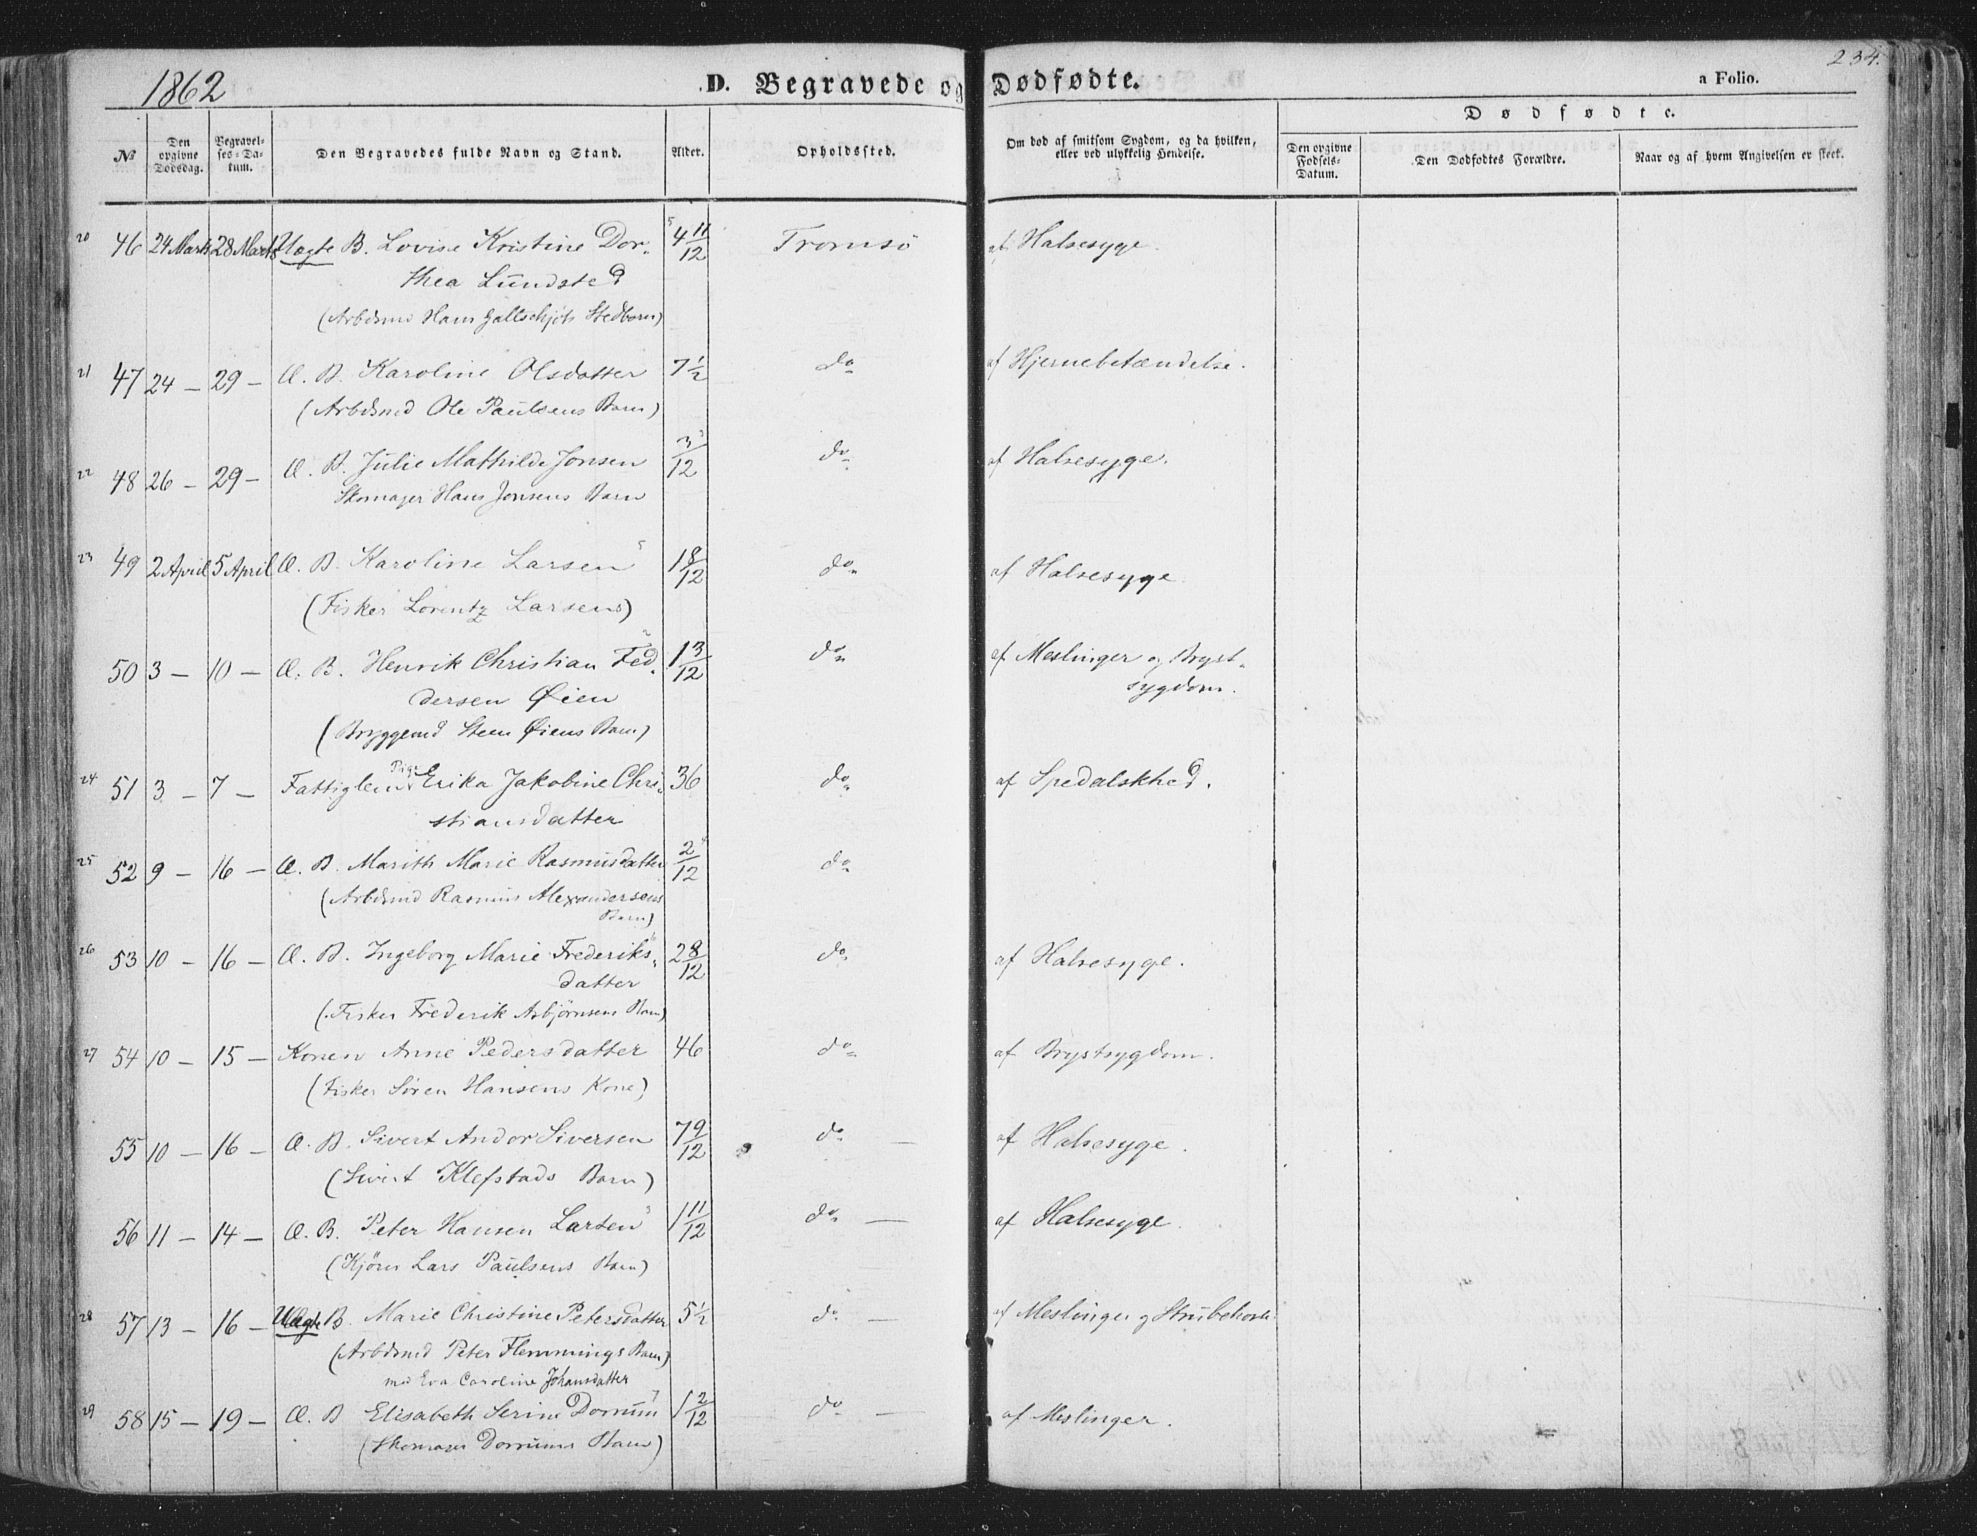 1862
D. Begravede og Dødfødte.
a Folio.
234.
Dødfødte.
No
Den opgivne Dødsdag.
Begravelses-Datum.
Den Begravedes fulde Navn og Stand.
Alder.
Opholdssted.
Om død af smitsom Sygdom, og da hvilken, eller ved ulykkelig Hendelse.
Den opgivne Fødsels-Datum.
Den Dødfødtes Forældre.
Naar og af hvem Angivelsen er skeet.
20 46 24 Marts 28 Marts Uægte B. Lovise Kristine Dor- 4 11/12 Tromsö af Halsesyge.
thea Lundsted
(Arbdsmd Hans Stedbarn)
21 47 24 - 29 - Æ. B. Karoline Olsdatter 7 1/2 do af Hjernebetændelse.
(Arbdsmd Ole Paulsens Barn)
22 48 26 - 29 - Æ. B. Julie Mathilde Jonsen 3/12 do af Halsesyge.
Skomager Hans Jonsens Barn
23 49 2 April 5 April Æ. B. Karoline Larsen 1 8/12 do af Halsesyge.
(Fisker Lorentz Larsens)
50 3 - 10 - Æ. B. Henrik Christian Fed- 1 3/12 do af Meslinger og Bryst-
dersen Øien sygdom.
(Bryggemd Steen Øiens Barn)
24 51 3 - 7 - Fattiglem Pige Erika Jakobine Chri- 36 do af Spedalskhed.
stiansdatter
25 52 9 - 16 - Æ. B. Marith Marie Rasmusdatter 2/12 do
(Arbdsmd Rasmus Alexandersens
Barn)
26 53 10 - 16 - Æ. B. Ingeborg Marie Frederiks- 2 8/12 do af Halsesyge.
datter
(Fisker Frederik Asbjørnsens Barn)
27 54 10 - 15 - Konen Anne Pedersdatter 46 do af Brystsygdom.
(Fisker Sören Hansens Kone)
55 10 - 16 - Æ. B. Sivert Andor Siversen 7 9/12 do - af Halsesyge.
(Sivert Klefstads Barn)
56 11 - 14 - Æ. B. Peter Hansen Larsen 1 11/12 do - af Halsesyge.
(Kjörer Lars Paulsens Barn)
28 57 13 - 16 - Uægte B. Marie Christine Petersdatter 5 1/2 do - af Meslinger og Strubehoste
(Arbdsmd Peter Flemmings Barn)
med Eva Caroline Johansdatter
29 58 15 - 19 - Æ. B Elisabeth Serine Dorrum 1 2/12 do - af Meslinger.
(Skomager Dorrums Barn)